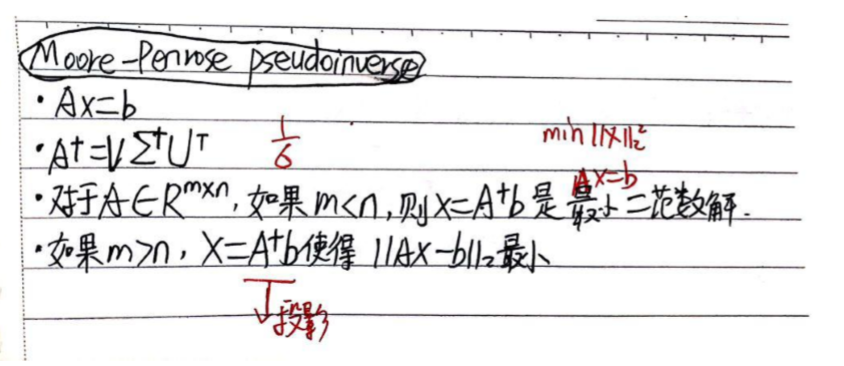 Moore-Penrose pseudoinverse
· Ax=b
· A⁺=VΣ⁺Uᵀ
1/σ
min ||x||₂²
Ax=b
· 对于A∈R^{m×n}, 如果m<n, 则x=A⁺b是最小二范数解.
· 如果m>n, x=A⁺b使得||Ax-b||₂最小
投影